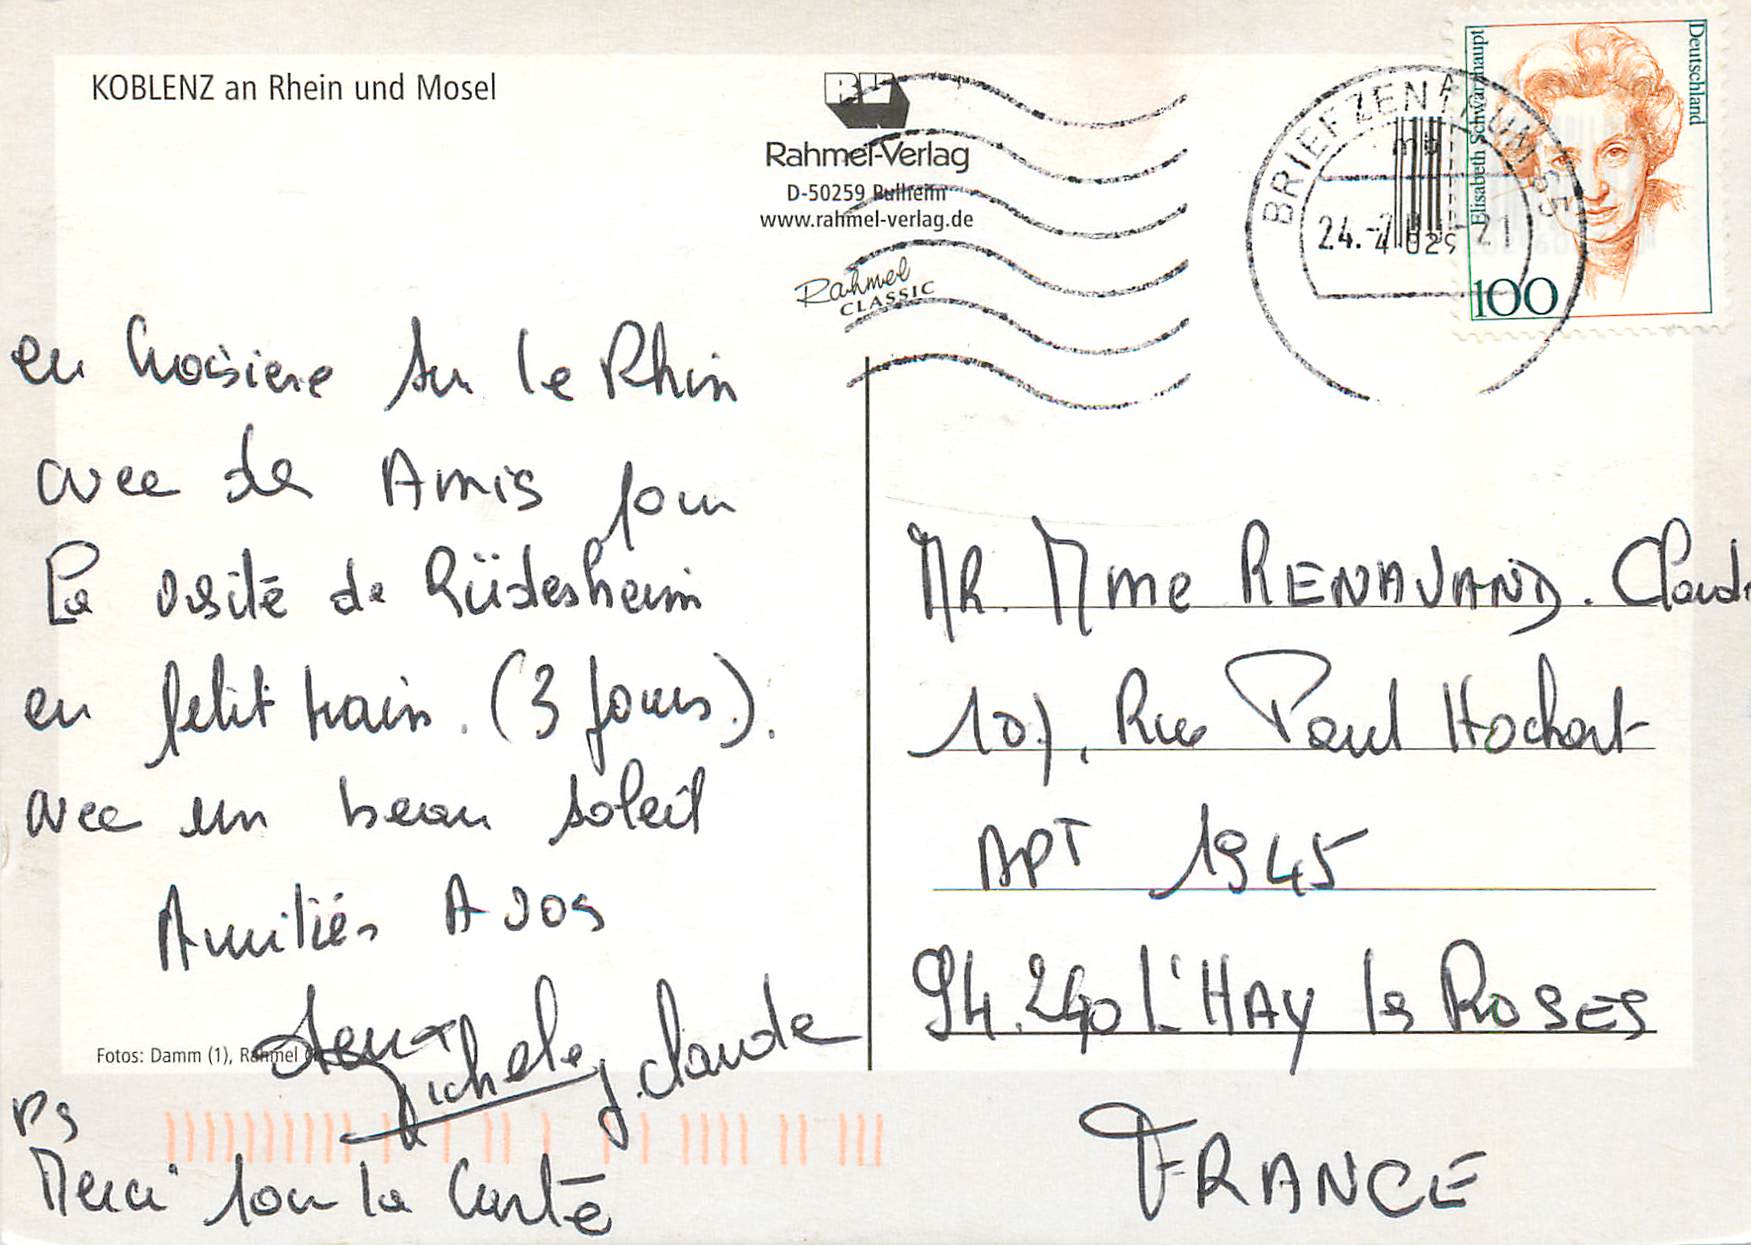 KOBLENZ an Rhein und Mosel
RV
Rahmel-Verlag
D-50259 Pulheim
www.rahmel-verlag.de
Rahmel
CLASSIC
BRIEFZENTRUM 55
mb
24.
-21
Deutschland
Elisabeth Schwarzhaupt
100
en Croisiere sur le Rhin
avec de Amis pour
La visite de Rüdesheim
en petit train. (3 jours).
avec un beau soleil
Amitiés A vos
deux
Michele J. Claude
Fotos: Damm (1), Rahmel
PS
Merci pour la Carte
MR. Mme RENAVAND. Claude
107, Rue Paul Hochart
APT 1945
94.240 L'HAY les ROSES
FRANCE